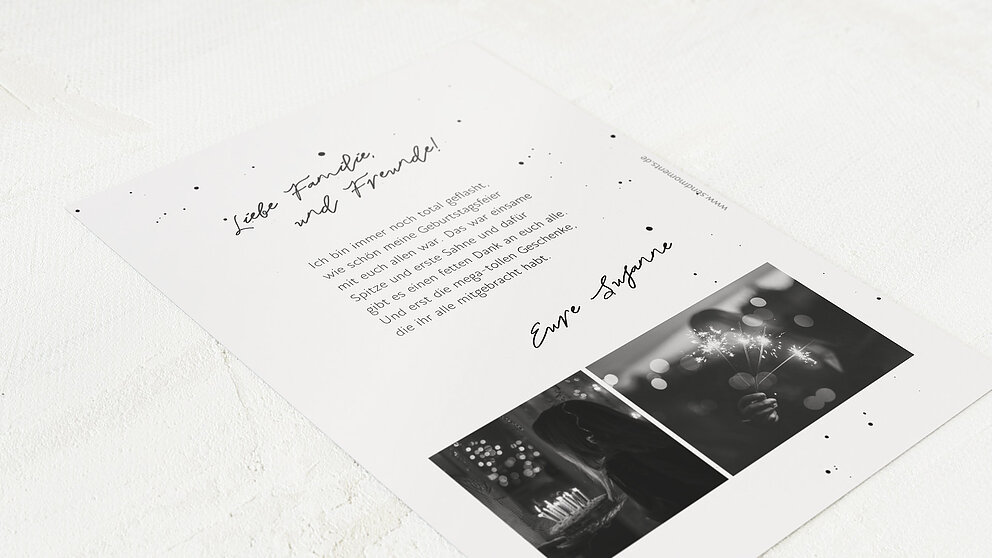 Liebe Familie,
und Freunde!
Ich bin immer noch total geflasht,
wie schön meine Geburtstagsfeier
mit euch allen war. Das war einsame
Spitze und erste Sahne und dafür
gibt es einen fetten Dank an euch alle.
Und erst die mega-tollen Geschenke,
die ihr alle mitgebracht habt.
Eure Susanne
www.sendmoments.de